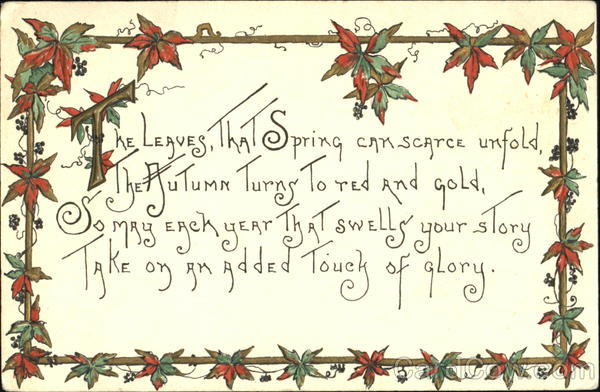 The Leaves, that Spring can scarce unfold,
The Autumn turns to red and gold,
So may each year that swells your story
Take on an added touch of glory.
CardCow.com